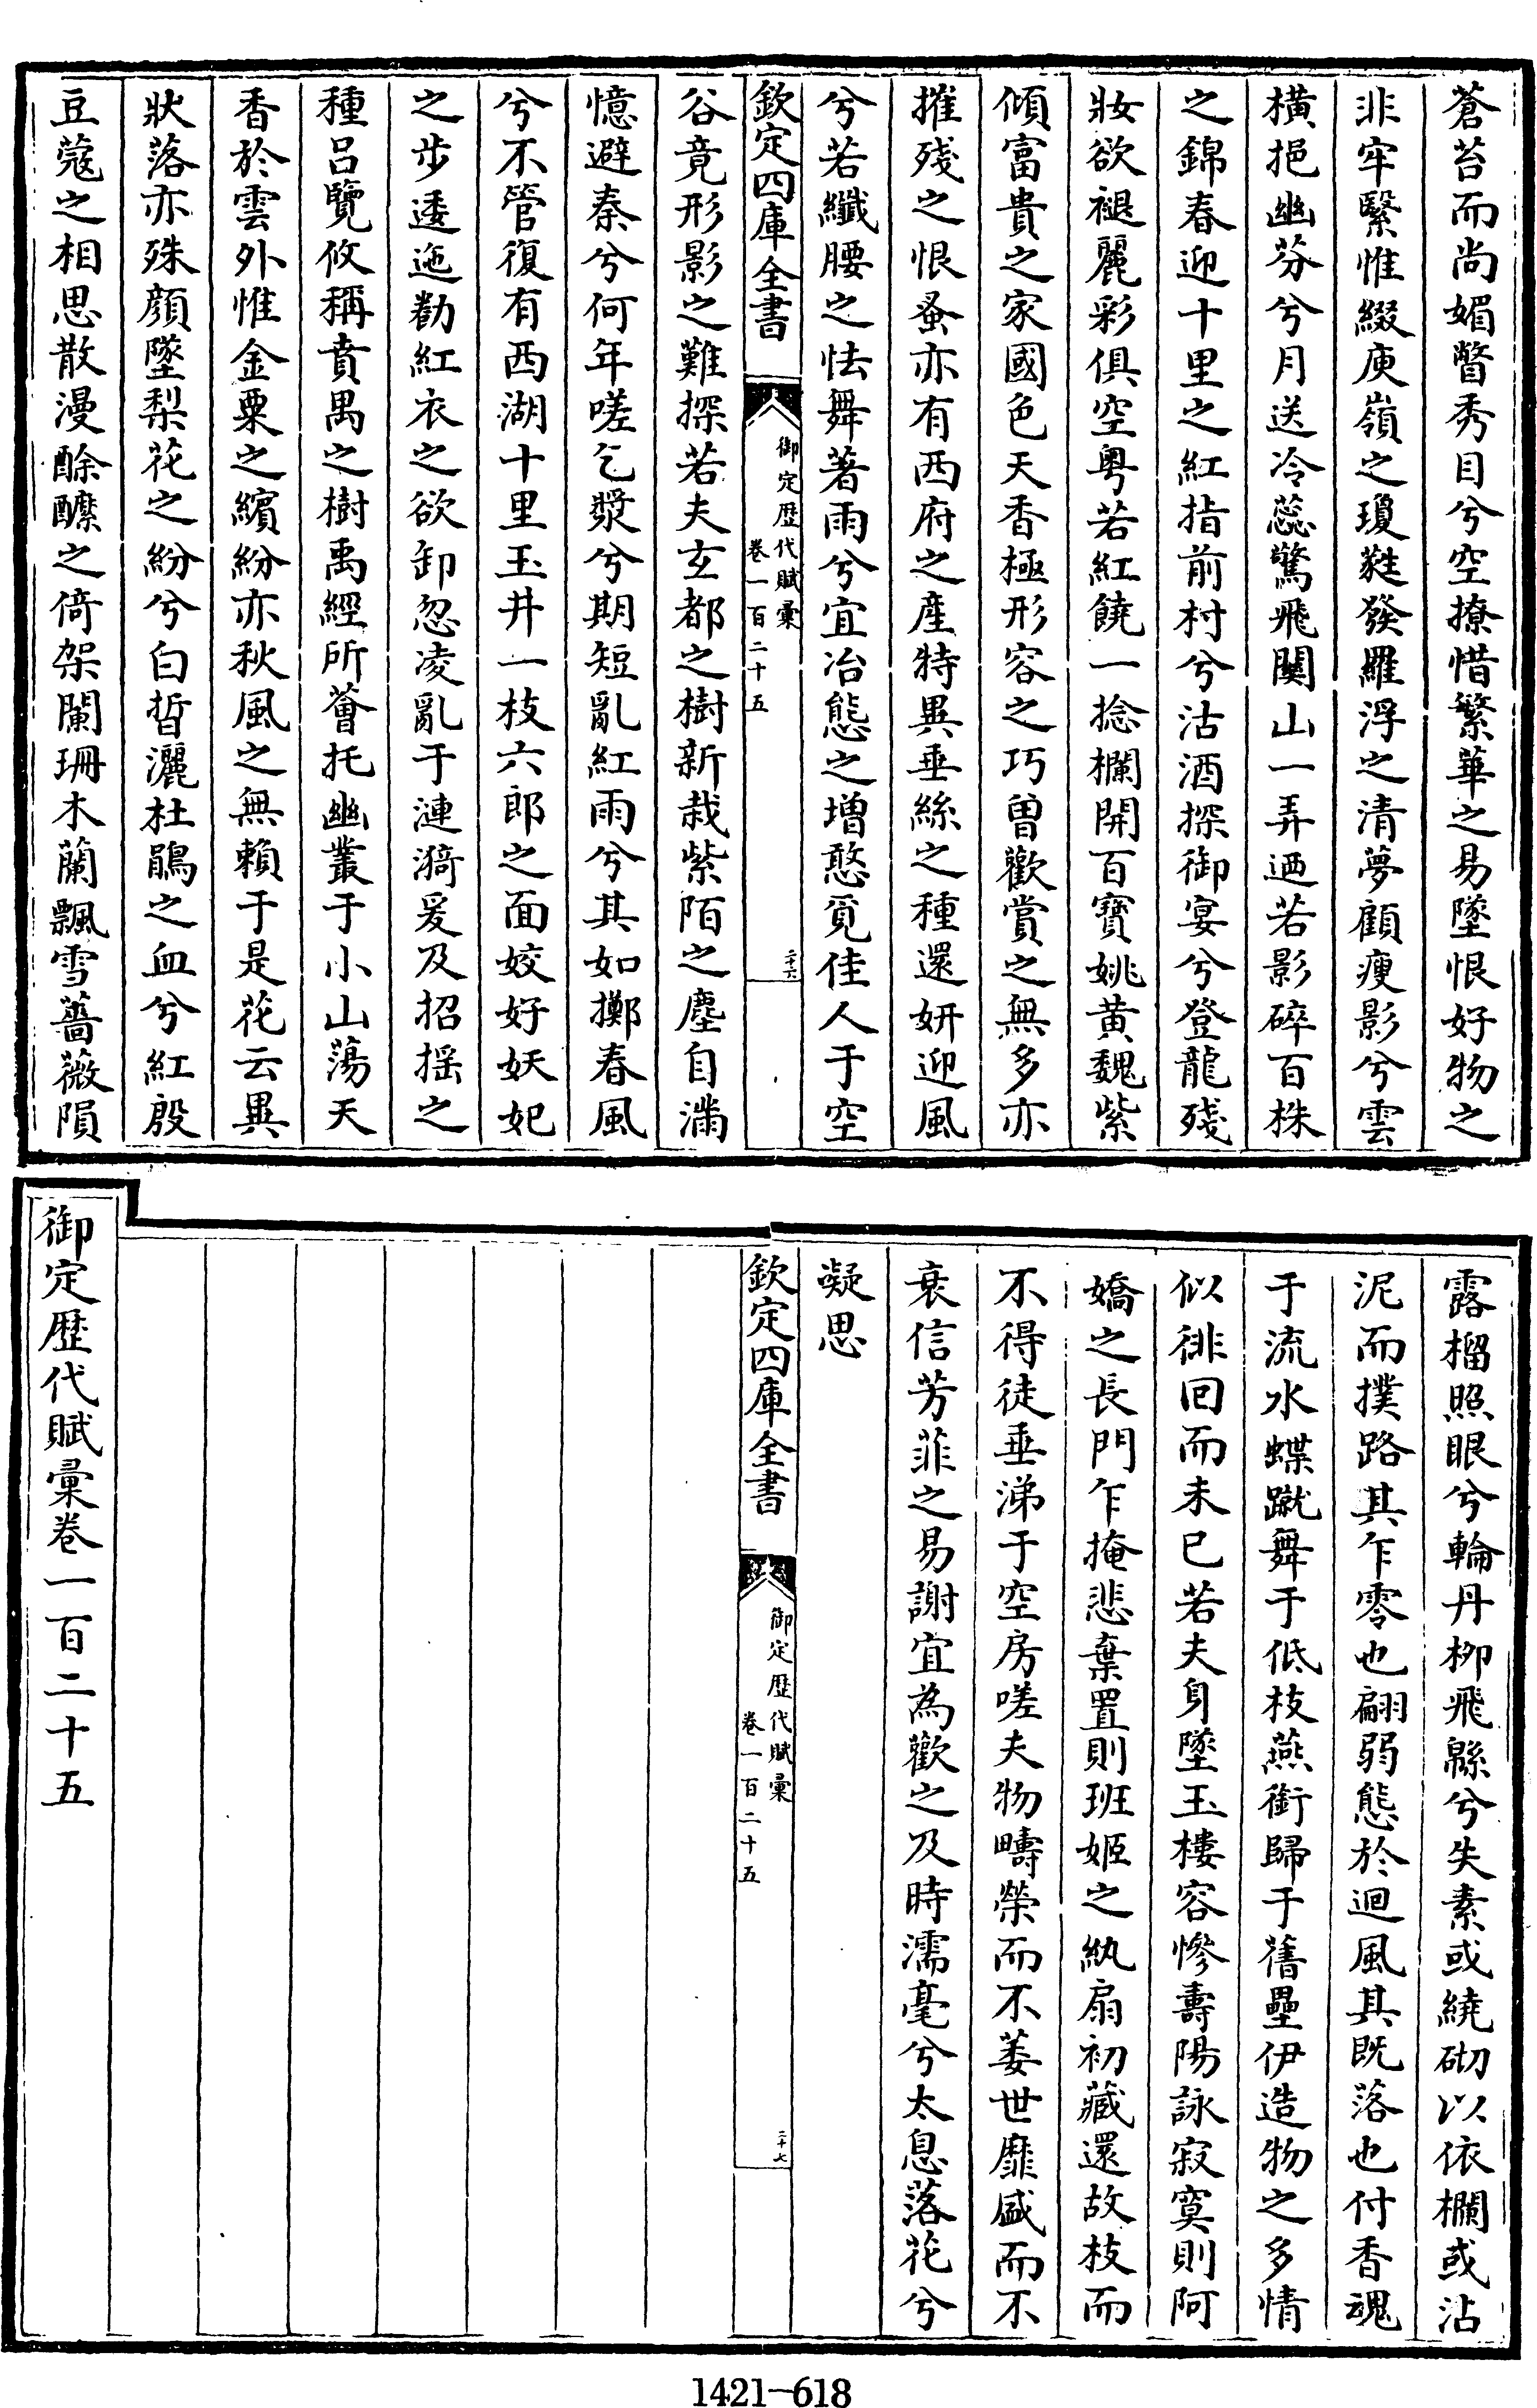 蒼苔而尚媚瞥秀目兮空撩惜繁華之易墜恨好物之
非牢繄惟綴庾嶺之瓊蕤發羅浮之清夢顧瘦影兮雲
橫挹幽芬兮月送冷蕊驚飛關山一弄迺若影碎百株
之錦春迎十里之紅指前村兮沽酒探御宴兮登龍殘
妝欲褪麗彩俱空粤若紅饒一捻欄開百寶姚黄魏紫
傾富貴之家國色天香極形容之巧曽歡賞之無多亦
摧殘之恨蚤亦有西府之産特異垂絲之種還妍迎風
兮若纖腰之怯舞著雨兮宜冶態之增憨覓佳人于空
欽定四庫全書
御定歴代賦彙
卷一百二十五
二十六
谷竟形影之難探若夫玄都之樹新栽紫陌之塵自滿
憶避秦兮何年嗟乞漿兮期短亂紅雨兮其如擲春風
兮不管復有西湖十里玉井一枝六郎之面姣好妖妃
之步逶迤勸紅衣之欲卸忽凌亂于漣漪爰及招揺之
種吕覽攸稱賁禺之樹禹經所薈托幽叢于小山蕩天
香於雲外惟金粟之繽紛亦秋風之無賴于是花云異
狀落亦殊顔墜梨花之紛兮白晳灑杜鵑之血兮紅殷
豆蔻之相思散漫酴醾之倚架闌珊木蘭飄雪薔薇隕
露榴照眼兮輪丹柳飛緜兮失素或繞砌以依欄或沾
泥而撲路其乍零也翩弱態於迴風其既落也付香魂
于流水蝶蹴舞于低枝燕銜歸于舊壘伊造物之多情
似徘回而未已若夫身墜玉樓容慘壽陽詠寂寞則阿
嬌之長門乍掩悲棄置則班姬之紈扇初藏還故枝而
不得徒垂涕于空房嗟夫物疇榮而不萎世靡盛而不
衰信芳菲之易謝宜為歡之及時濡毫兮太息落花兮
凝思
欽定四庫全書
御定歴代賦彙
卷一百二十五
二十七
御定歴代賦彙卷一百二十五
1421-618